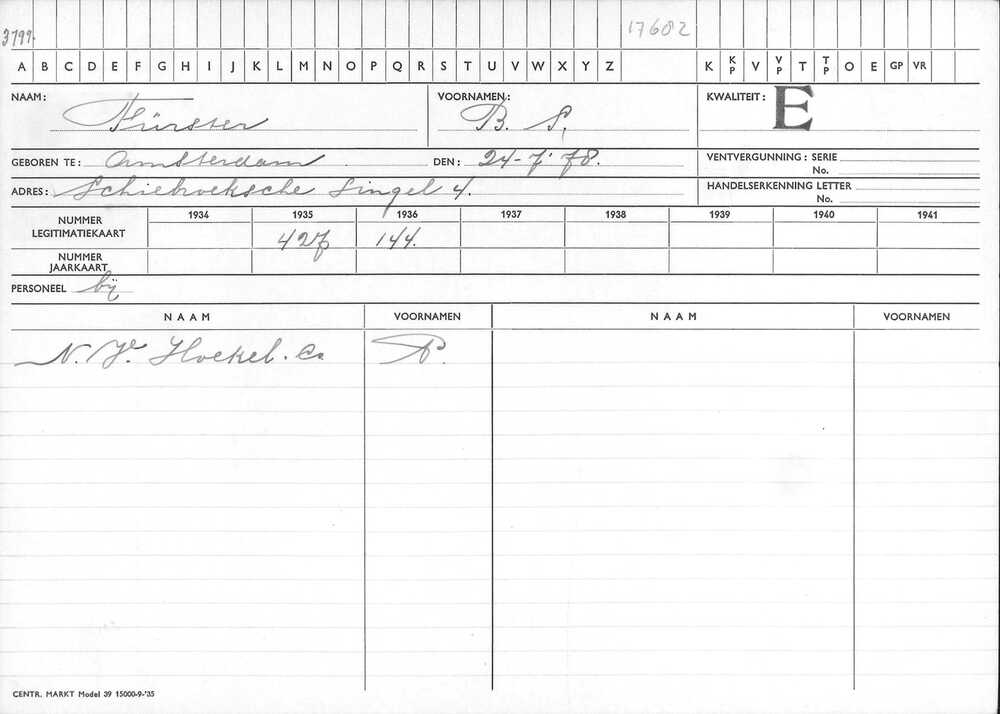 3799. 17682
A B C D E F G H I J K L M N O P Q R S T U V W X Y Z K KP V VP T TP O E GP VR
NAAM: Fürster VOORNAMEN: B. S. KWALITEIT: E
GEBOREN TE: Amsterdam DEN: 24-7-'78. VENTVERGUNNING: SERIE
No.
ADRES: Schiekoeksche Singel 4. HANDELSERKENNING LETTER
No.
1934 1935 1936 1937 1938 1939 1940 1941
NUMMER LEGITIMATIEKAART 427 144.
NUMMER JAARKAART
PERSONEEL bij
NAAM VOORNAMEN NAAM VOORNAMEN
N.V. Hoekel. Co P.
CENTR. MARKT Model 39 15000-9-'35